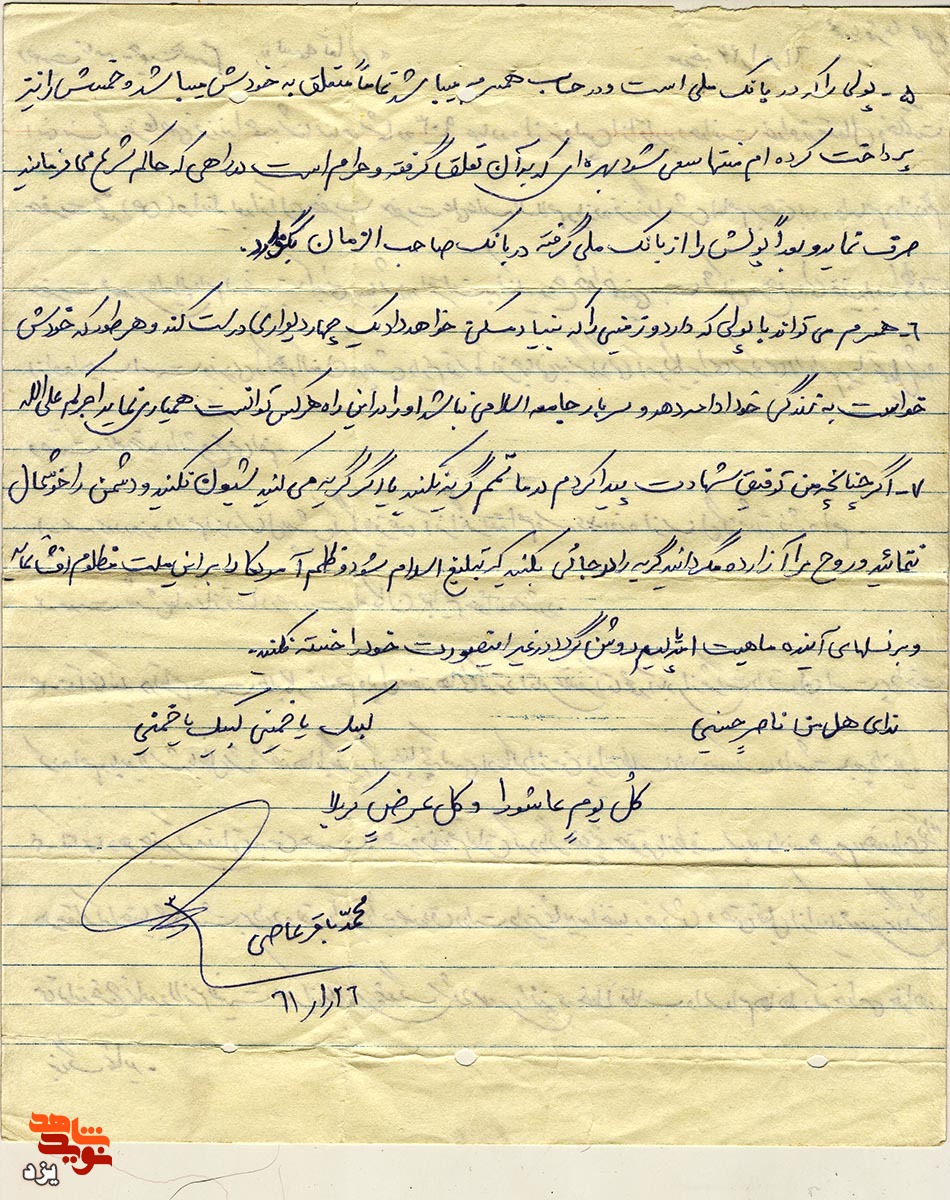 ۵- پولی را که در بانک ملی است و در حساب همسرم میباشد تماماً متعلق به خودش میباشد و خمسش را نیز
پرداخت کرده ام منتها سعی شود بهره ای که به آن تعلق گرفته و حرام است در راهی که حاکم شرع می فرمایند
صرف نماید و بعداً پولش را از بانک ملی گرفته در بانک صاحب الزمان بگذارد.
۶- همسرم می تواند با پولی که دارد و زمینی را که بنیاد مسکن خواهد داد یک چهار دیواری درست کند و هر طور که خودش
خواست به زندگی خود ادامه دهد و سربار جامعه اسلامی نباشد او را در این راه هر کس توانست همیاری نماید اجرکم علی الله
۷- اگر چنانچه من توفیق شهادت پیدا کردم در ماتمم گریه نکنید یا اگر گریه می کنید شیون نکنید و دشمن را خوشحال
ننمائید و روح مرا آزارده مگردانید گریه را در جائی بکنید که تبلیغ اسلام شود و ظلم آمریکا را بر این ملت مظلوم افشا نماید
و بر نسلهای آینده ماهیت امپریالیسم روشن گردد در غیر اینصورت خود را خسته نکنید.
ندای هل من ناصر حسینی لبیک یا خمینی لبیک یا خمینی
کلُ یومٍ عاشورا و کل عرضٍ کربلا
محمّد باقر عاصی
۶۱/۱/۲۶
نوید شاهد
یزد